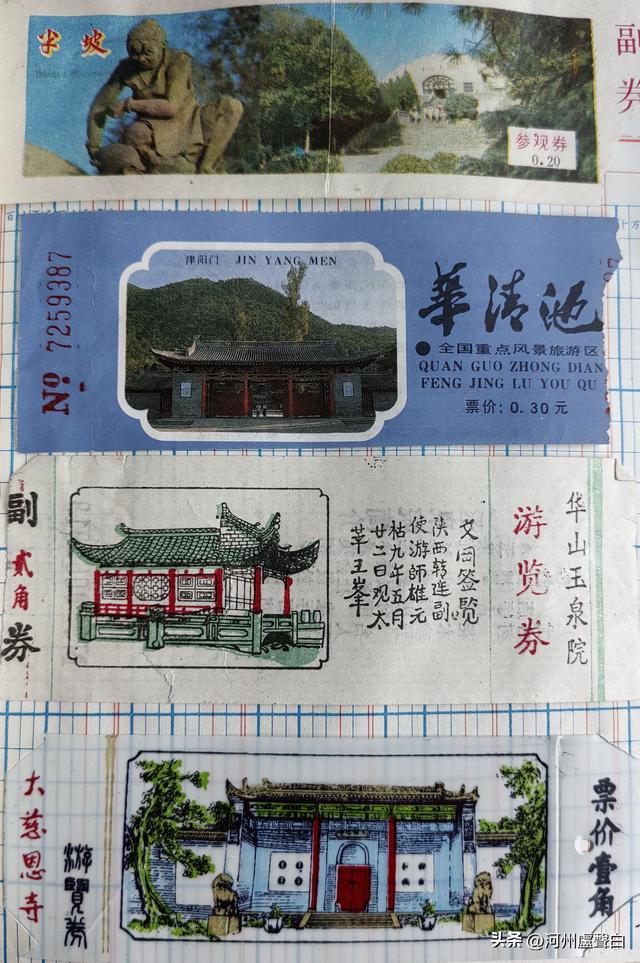 半坡
参观券
0.20
副
券
№ 7259387
津阳门 JIN YANG MEN
華清池
● 全国重点风景旅游区
QUAN GUO ZHONG DIAN
FENG JING LU YOU QU
票价: 0.30 元
副
贰角
券
文同签览
陕西转运副
使游師雄元
祐九年五月
廿二日观太
華玉峯
游览券
华山玉泉院
大慈恩寺
游覽券
票价壹角
头条 @河州盧聲白